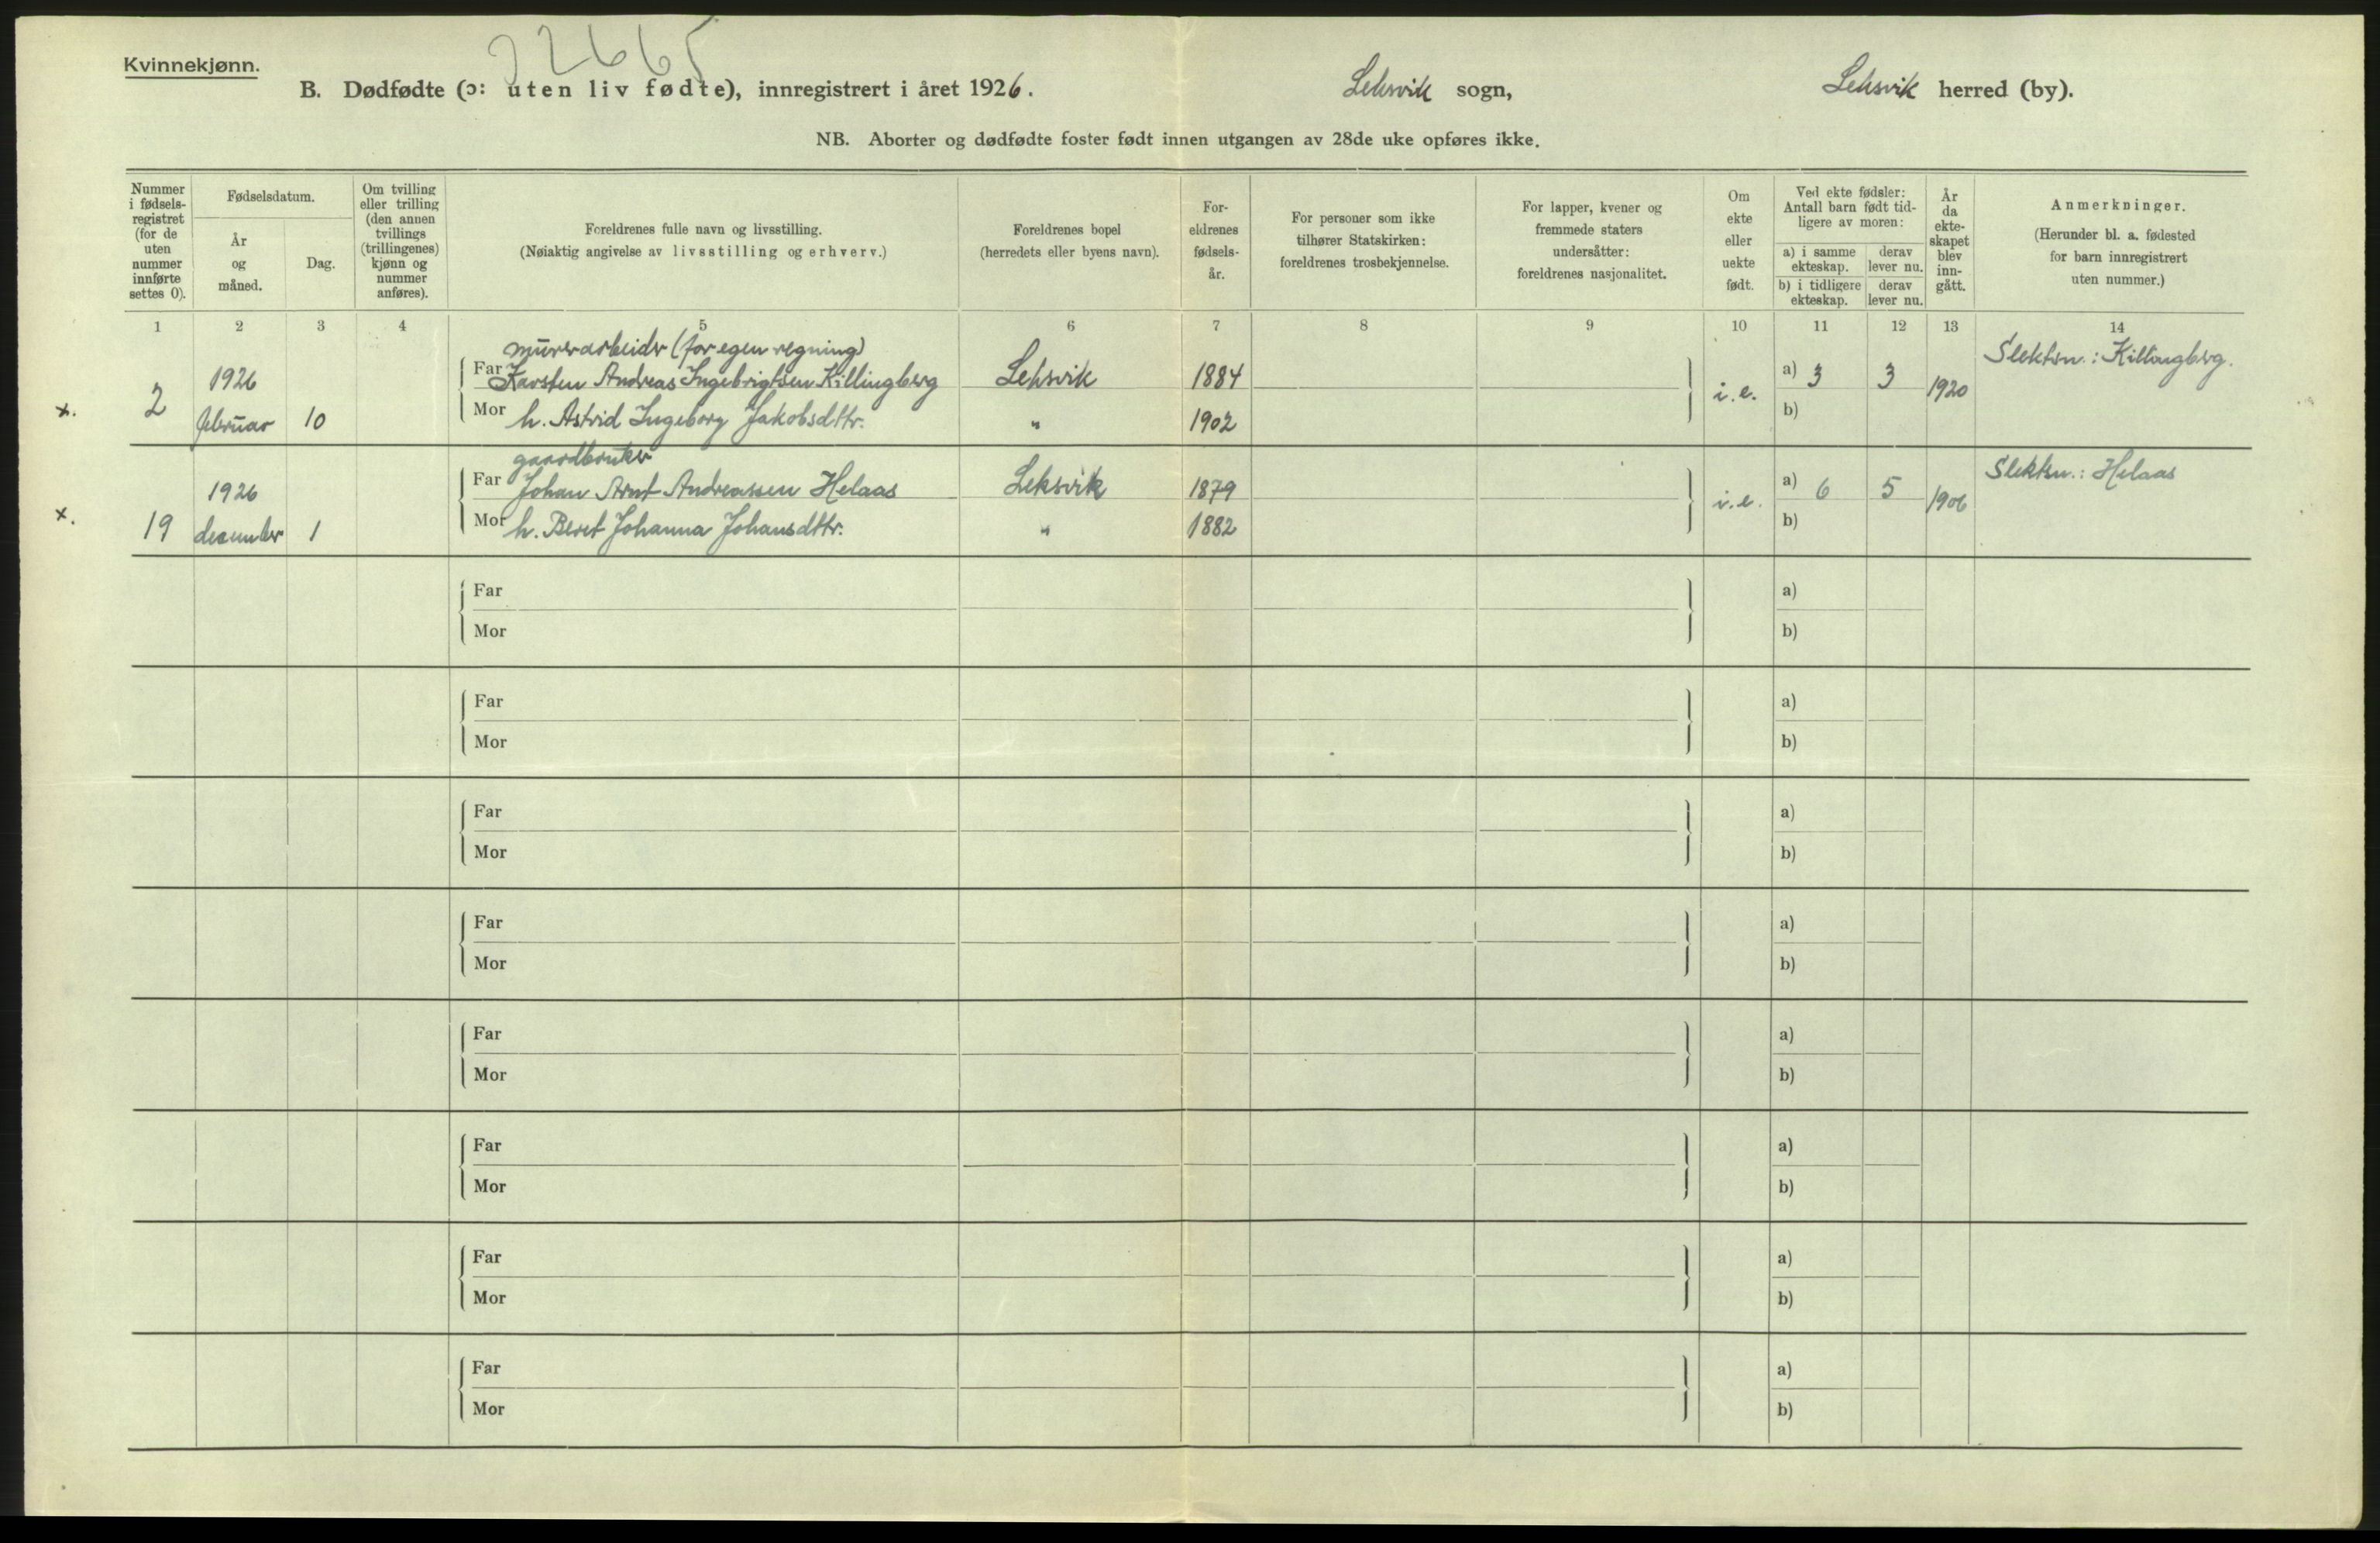 22665
Kvinnekjønn.
B. Dødfødte (ɔ: uten liv fødte), innregistrert i året 1926. Leksvik sogn, Leksvik herred (by).
NB. Aborter og dødfødte foster født innen utgangen av 28de uke opføres ikke.
Nummer i fødsels-registret (for de uten nummer innførte settes 0).
Fødselsdatum.
År og måned.
Dag.
Om tvilling eller trilling (den annen tvillings (trillingenes) kjønn og nummer anføres).
Foreldrenes fulle navn og livsstilling.
(Nøiaktig angivelse av livsstilling og erhverv.)
Foreldrenes bopel
(herredets eller byens navn).
For-eldrenes fødsels-år.
For personer som ikke tilhører Statskirken: foreldrenes trosbekjennelse.
For lapper, kvener og fremmede staters undersåtter: foreldrenes nasjonalitet.
Om ekte eller uekte født.
Ved ekte fødsler: Antall barn født tid-ligere av moren:
a) i samme ekteskap. derav lever nu.
b) i tidligere ekteskap. derav lever nu.
År da ekte-skapet blev inn-gått.
Anmerkninger.
(Herunder bl. a. fødested for barn innregistrert uten nummer.)
1 2 3 4 5 6 7 8 9 10 11 12 13 14
murerarbeider (for egen regning)
x. 2 1926 februar 10
Far Karsten Andreas Ingebrigtsen Killingberg Leksvik 1884
Mor h. Astrid Ingeborg Jakobsdttr. " 1902
i. e. a) 3 3 1920
b)
Slektsn.: Killingberg.
gaardbruker
x. 19 1926 desember 1
Far Johan Arnt Andreassen Helaas Leksvik 1879
Mor h. Beret Johanna Johansdttr. " 1882
i. e. a) 6 5 1906
b)
Slektsn.: Helaas
Far a)
Mor b)
Far a)
Mor b)
Far a)
Mor b)
Far a)
Mor b)
Far a)
Mor b)
Far a)
Mor b)
Far a)
Mor b)
Far a)
Mor b)